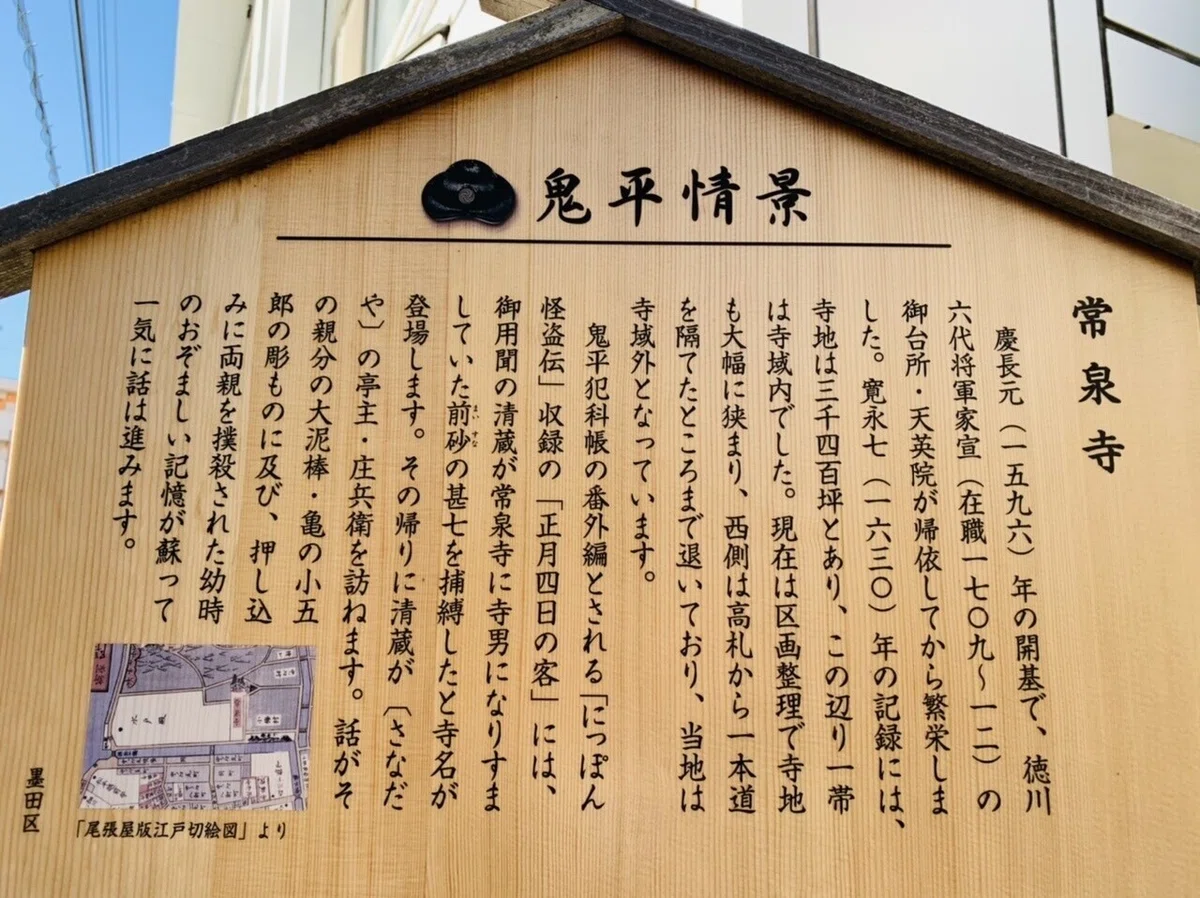 鬼平情景
常泉寺
慶長元（一五九六）年の開基で、徳川
六代将軍家宣（在職一七〇九〜一二）の
御台所・天英院が帰依してから繁栄しま
した。寛永七（一六三〇）年の記録には、
寺地は三千四百坪とあり、この辺り一帯
は寺域内でした。現在は区画整理で寺地
も大幅に狭まり、西側は高札から一本道
を隔てたところまで退いており、当地は
寺域外となっています。
鬼平犯科帳の番外編とされる「にっぽん
怪盗伝」収録の「正月四日の客」には、
御用聞の清蔵が常泉寺に寺男になりすま
していた前砂の甚七を捕縛したと寺名が
登場します。その帰りに清蔵が〔さなだ
や〕の亭主・庄兵衛を訪ねます。話がそ
の親分の大泥棒・亀の小五
郎の彫ものに及び、押し込
みに両親を撲殺された幼時
のおぞましい記憶が蘇って
一気に話は進みます。
「尾張屋版江戸切絵図」より
墨田区